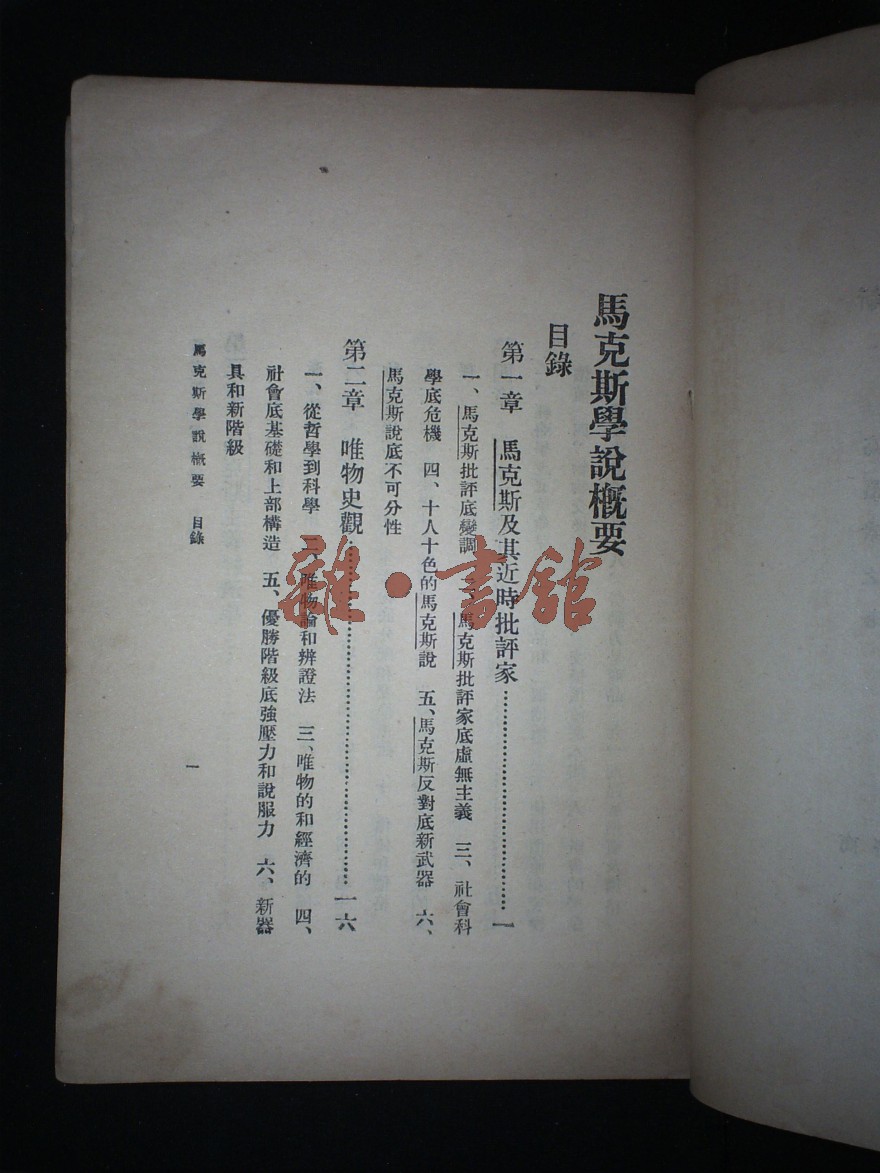 馬克斯學說概要
目錄
第一章 馬克斯及其近時批評家……………………一
一、馬克斯批評底變調 二、馬克斯批評家底虛無主義 三、社會科
學底危機 四、十人十色的馬克斯說 五、馬克斯反對底新武器 六、
馬克斯說底不可分性
第二章 唯物史觀……………………一六
一、從哲學到科學 二、唯物論和辨證法 三、唯物的和經濟的 四、
社會底基礎和上部構造 五、優勝階級底強壓力和說服力 六、新器
具和新階級
馬克斯學說概要 目錄 一
雜·書館